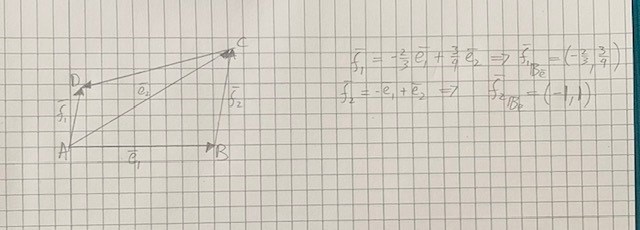 C
D
e₂
f̄₁
f̄₂
A
ē₁
B
f̄₁ = -2/3 ē₁ + 3/9 ē₂ => f̄₁|Bē = (-2/3, 3/9)
f̄₂ = -e₁ + ē₂ => f̄₂|Bē = (-1, 1)